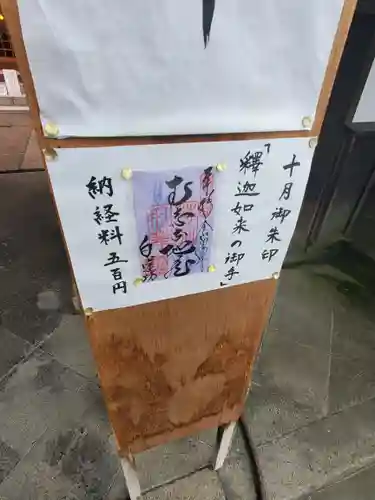 十月御朱印
「釋迦如来の御手」
奉拝
納経料五百円